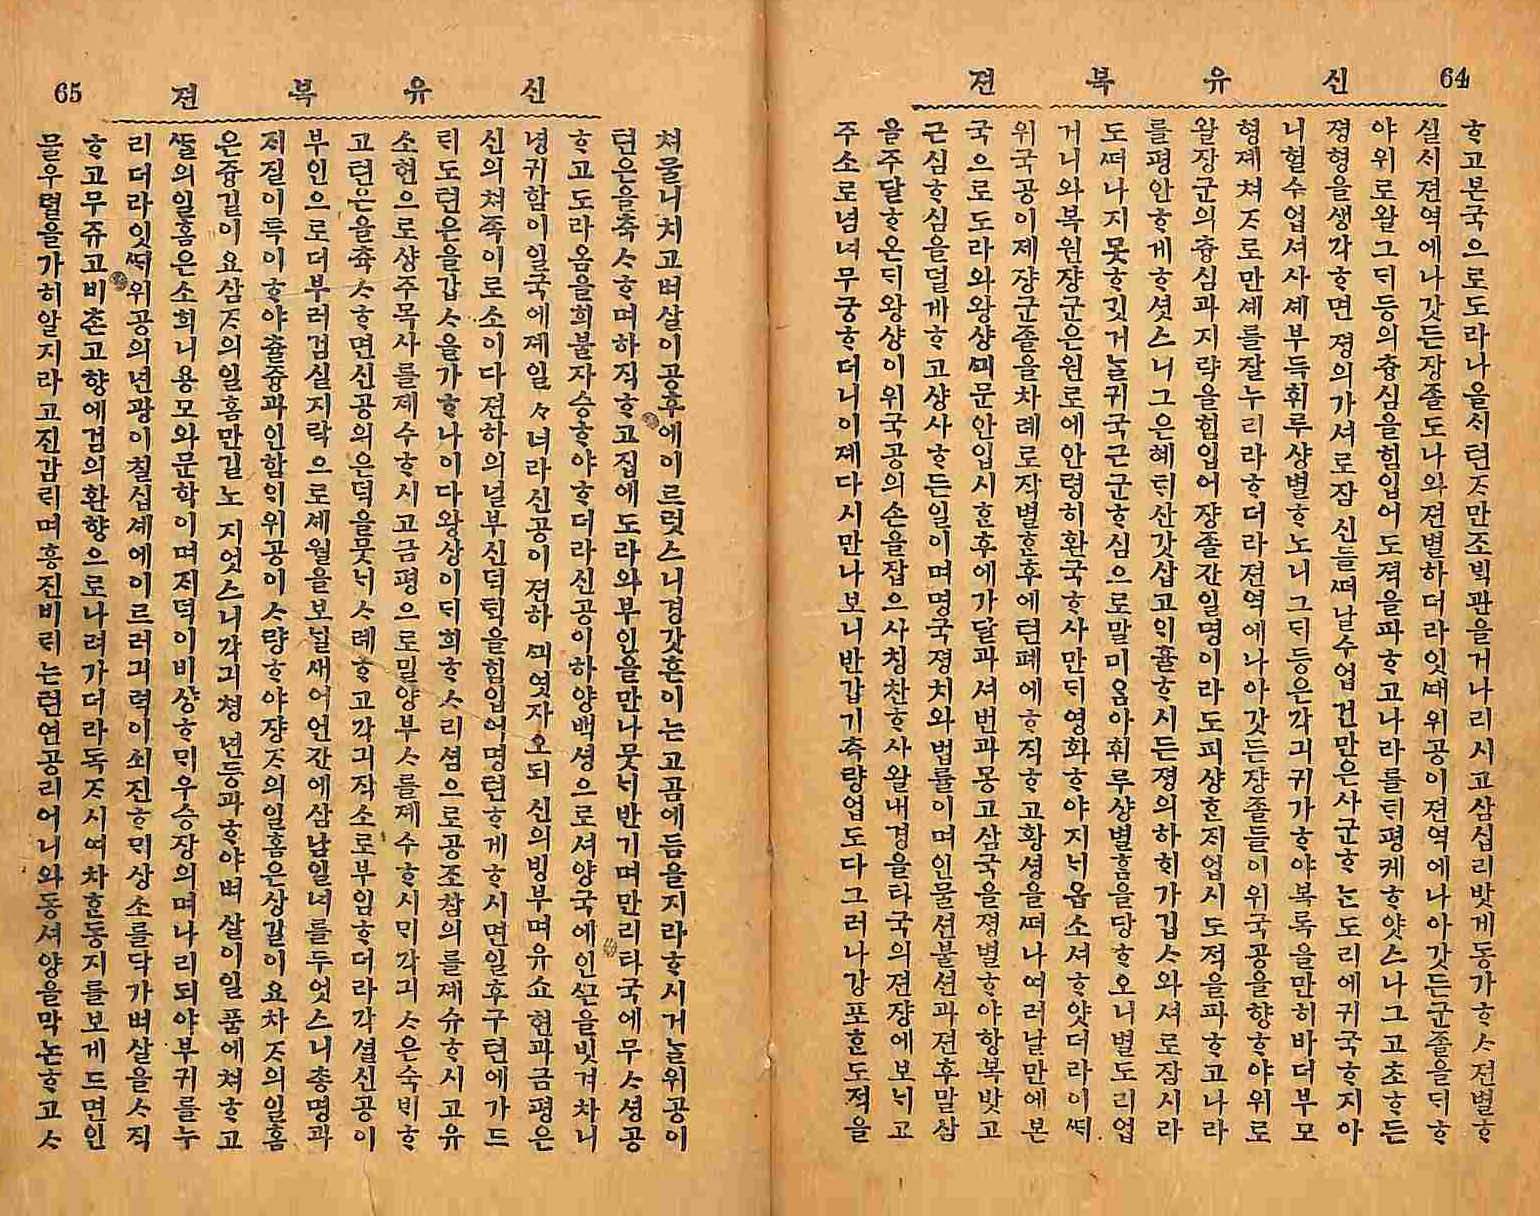 64 신유복젼
ᄒᆞ고본국으로도라나올ᄉᆡ텬ᄌᆞ만조ᄇᆡᆨ관을거나리시고삼십리밧게동가ᄒᆞᄉᆞ젼별ᄒᆞ
실ᄉᆡ젼역에나갓든장졸도나와젼별하더라잇ᄯᅢ위공이젼역에나아갓든군졸을ᄃᆡᄒᆞ
야위로왈그ᄃᆡ등의츙심을힘입어도젹을파ᄒᆞ고나라를ᄐᆡ평케ᄒᆞ얏스나그고초ᄒᆞ든
졍형을생각ᄒᆞ면졍의가셔로잠신들ᄯᅥ날수업건만은사군ᄒᆞᄂᆞᆫ도리에귀국ᄒᆞ지아
니헐수업셔사셰부득휘루샹별ᄒᆞ노니그ᄃᆡ등은각긔귀가ᄒᆞ야복록을만히바더부모
형졔쳐ᄌᆞ로만셰를잘누리라ᄒᆞ더라젼역에나아갓든쟝졸들이위국공을향ᄒᆞ야위로
왈장군의츙심과지략을힘입어쟝졸간일명이라도피샹ᄒᆞᆫ지업시도적을파ᄒᆞ고나라
를평안ᄒᆞ게ᄒᆞ셧스니그은혜ᄐᆡ산갓삽고ᄋᆡ휼ᄒᆞ시든졍의하ᄒᆡ가깁ᄉᆞ와셔로잡시라
도ᄯᅥ나지못ᄒᆞ깃거늘귀국근군ᄒᆞ심으로말미암아휘루샹별홈을당ᄒᆞ오니별도리업
거니와복원쟝군은원로에안령히환국ᄒᆞ사만ᄃᆡ영화ᄒᆞ야지ᄂᆡ옵소셔ᄒᆞ얏더라이ᄯᅢ
위국공이졔쟝군졸을차례로작별ᄒᆞᆫ후에텬폐에ᄒᆞ직ᄒᆞ고황셩을ᄯᅥ나여러날만에본
국으로도라와왕샹ᄭᅴ문안입시ᄒᆞᆫ후에가달과셔번과몽고삼국을졍별ᄒᆞ야항복밧고
근심ᄒᆞ심을덜게ᄒᆞ고샹사ᄒᆞ든일이며명국졍치와법률이며인물션불션과젼후말삼
을주달ᄒᆞ온ᄃᆡ왕샹이위국공의손을잡으사칭찬ᄒᆞ사왈내경을타국의젼쟝에보ᄂᆡ고
주소로념녀무궁ᄒᆞ더니이졔다시만나보니반갑기측량업도다그러나강포ᄒᆞᆫ도적을
65 신유복젼
쳐물니치고벼살이공후에이르럿스니경갓흔이는고금에듬을지라ᄒᆞ시거늘위공이
텬은을츅ᄉᆞᄒᆞ며하직ᄒᆞ고집에도라와부인을만나못ᄂᆡ반기며만리타국에무ᄉᆞ셩공
ᄒᆞ고도라옴을희불자승ᄒᆞ야ᄒᆞ더라신공이하양백셩으로셔양국에인ᄭᅳᆫ을빗겨차니
녕귀함이일국에졔일〻너라신공이젼하ᄭᅴ엿자오되신의빙부며유쇼현과금평은
신의쳐족이로소이다젼하의널부신덕ᄐᆡᆨ을힘입어명텬ᄒᆞ게ᄒᆞ시면일후구텬에가드
ᄅᆡ도텬은을갑ᄉᆞ을가ᄒᆞ나이다왕상이ᄃᆡ희ᄒᆞᄉᆞ리셤으로공조참의를졔슈ᄒᆞ시고유
소현으로샹주목사를졔수ᄒᆞ시고금평으로밀양부ᄉᆞ를졔수ᄒᆞ시ᄆᆡ각긔ᄉᆞ은숙ᄇᆡᄒᆞ
고텬은을츅ᄉᆞᄒᆞ면신공의은덕을못ᄂᆡᄉᆞ례ᄒᆞ고각긔작소로부임ᄒᆞ더라각셜신공이
부인으로더부러검실지락으로셰월을보ᄂᆡᆯ새어언간에삼남일녀를두엇스니총명과
ᄌᆡ질이특이ᄒᆞ야츌즁과인함ᄋᆡ위공이ᄉᆞ량ᄒᆞ야쟝ᄌᆞ의일홈은상길이요차ᄌᆞ의일홈
은즁길이요삼ᄌᆞ의일홈만길노지엇스니각긔청년등과ᄒᆞ야벼살이일품에쳐ᄒᆞ고
ᄯᆞᆯ의일홈은소희니용모와문학이며ᄌᆡ덕이비샹ᄒᆞᄆᆡ우승장의며나리되야부귀를누
리더라잇ᄯᅢ위공의년광이칠십셰에이르러긔력이쇠진ᄒᆞᄆᆡ상소를닥가벼살을ᄉᆞ직
ᄒᆞ고무쥬고비촌고향에검의환향으로나려가더라독ᄌᆞ시여차ᄒᆞᆫ동지를보게드면인
믈우렬을가히알지라고진감ᄅᆡ며흥진비ᄅᆡ는텬연공리어니와동셔양을막논ᄒᆞ고ᄉᆞ